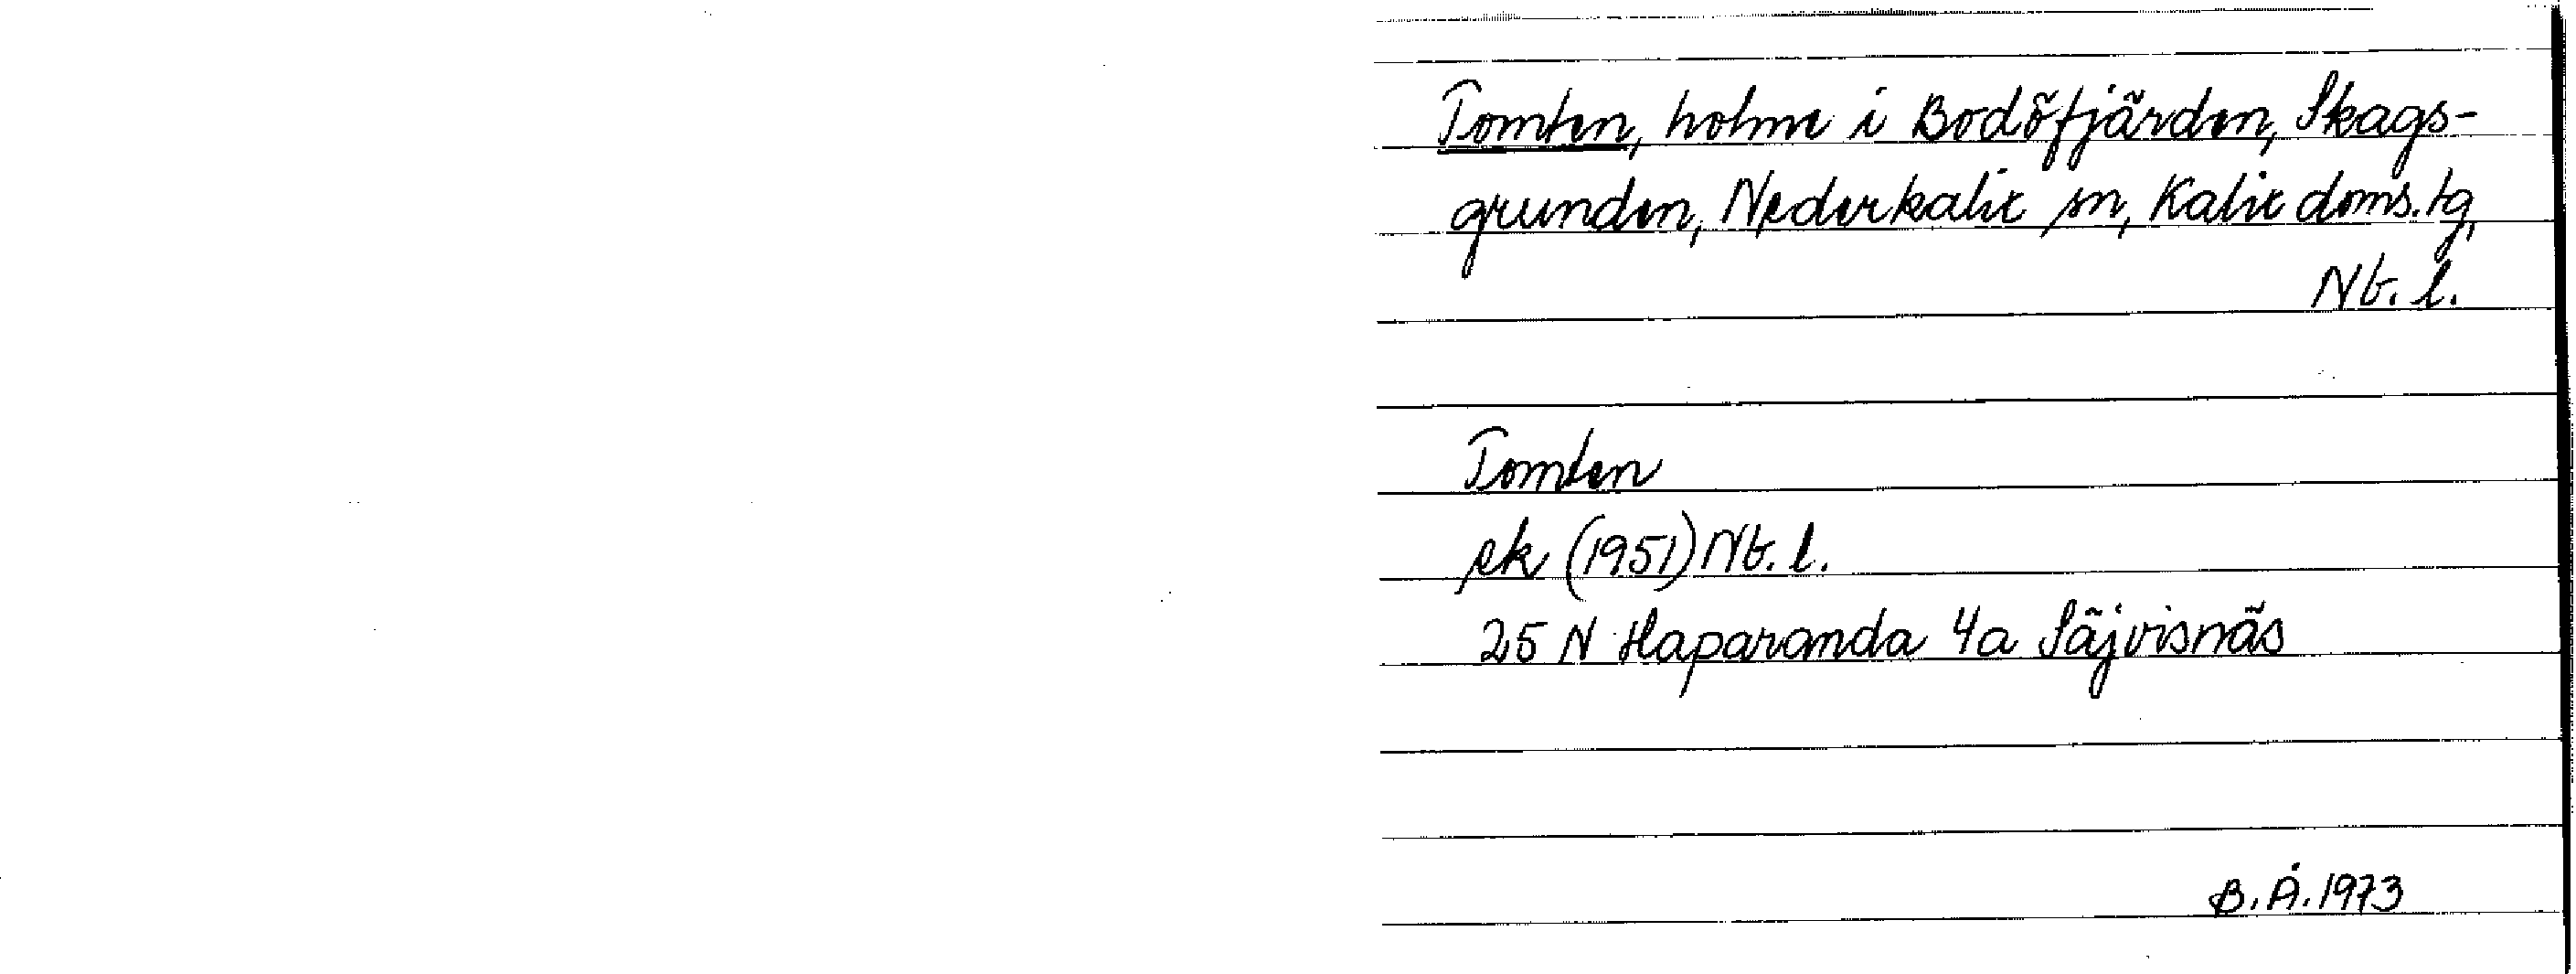 Tomten, holme i Bodöfjärden, Skags-
grunden, Nederkalix sn, Kalix doms.tg,
Nb. l.
Tomten
ek (1951) Nb. l.
25 N Haparanda 4a Säjvisnäs
B.Å.1973